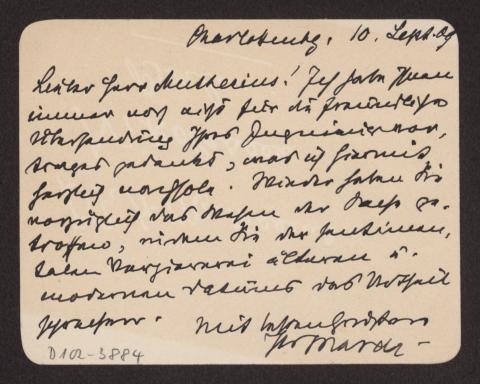 Charlottenbg. 10. Sept. 09
Lieber Herr Muthesius! Ich habe Ihnen
immer noch nicht für die freundliche
Übersendung Ihres Ingenieurvor,
trages gedankt, was ich hiermit
herzlich nachhole. Wieder haben Sie
vorzüglich das Wesen der Sache ge-
troffen, indem Sie der sentimen,
talen Verziererei älteren u.
modernen Datums das Urtheil
sprechen.
Mit besten Grüßen
Ihr
D102-3884